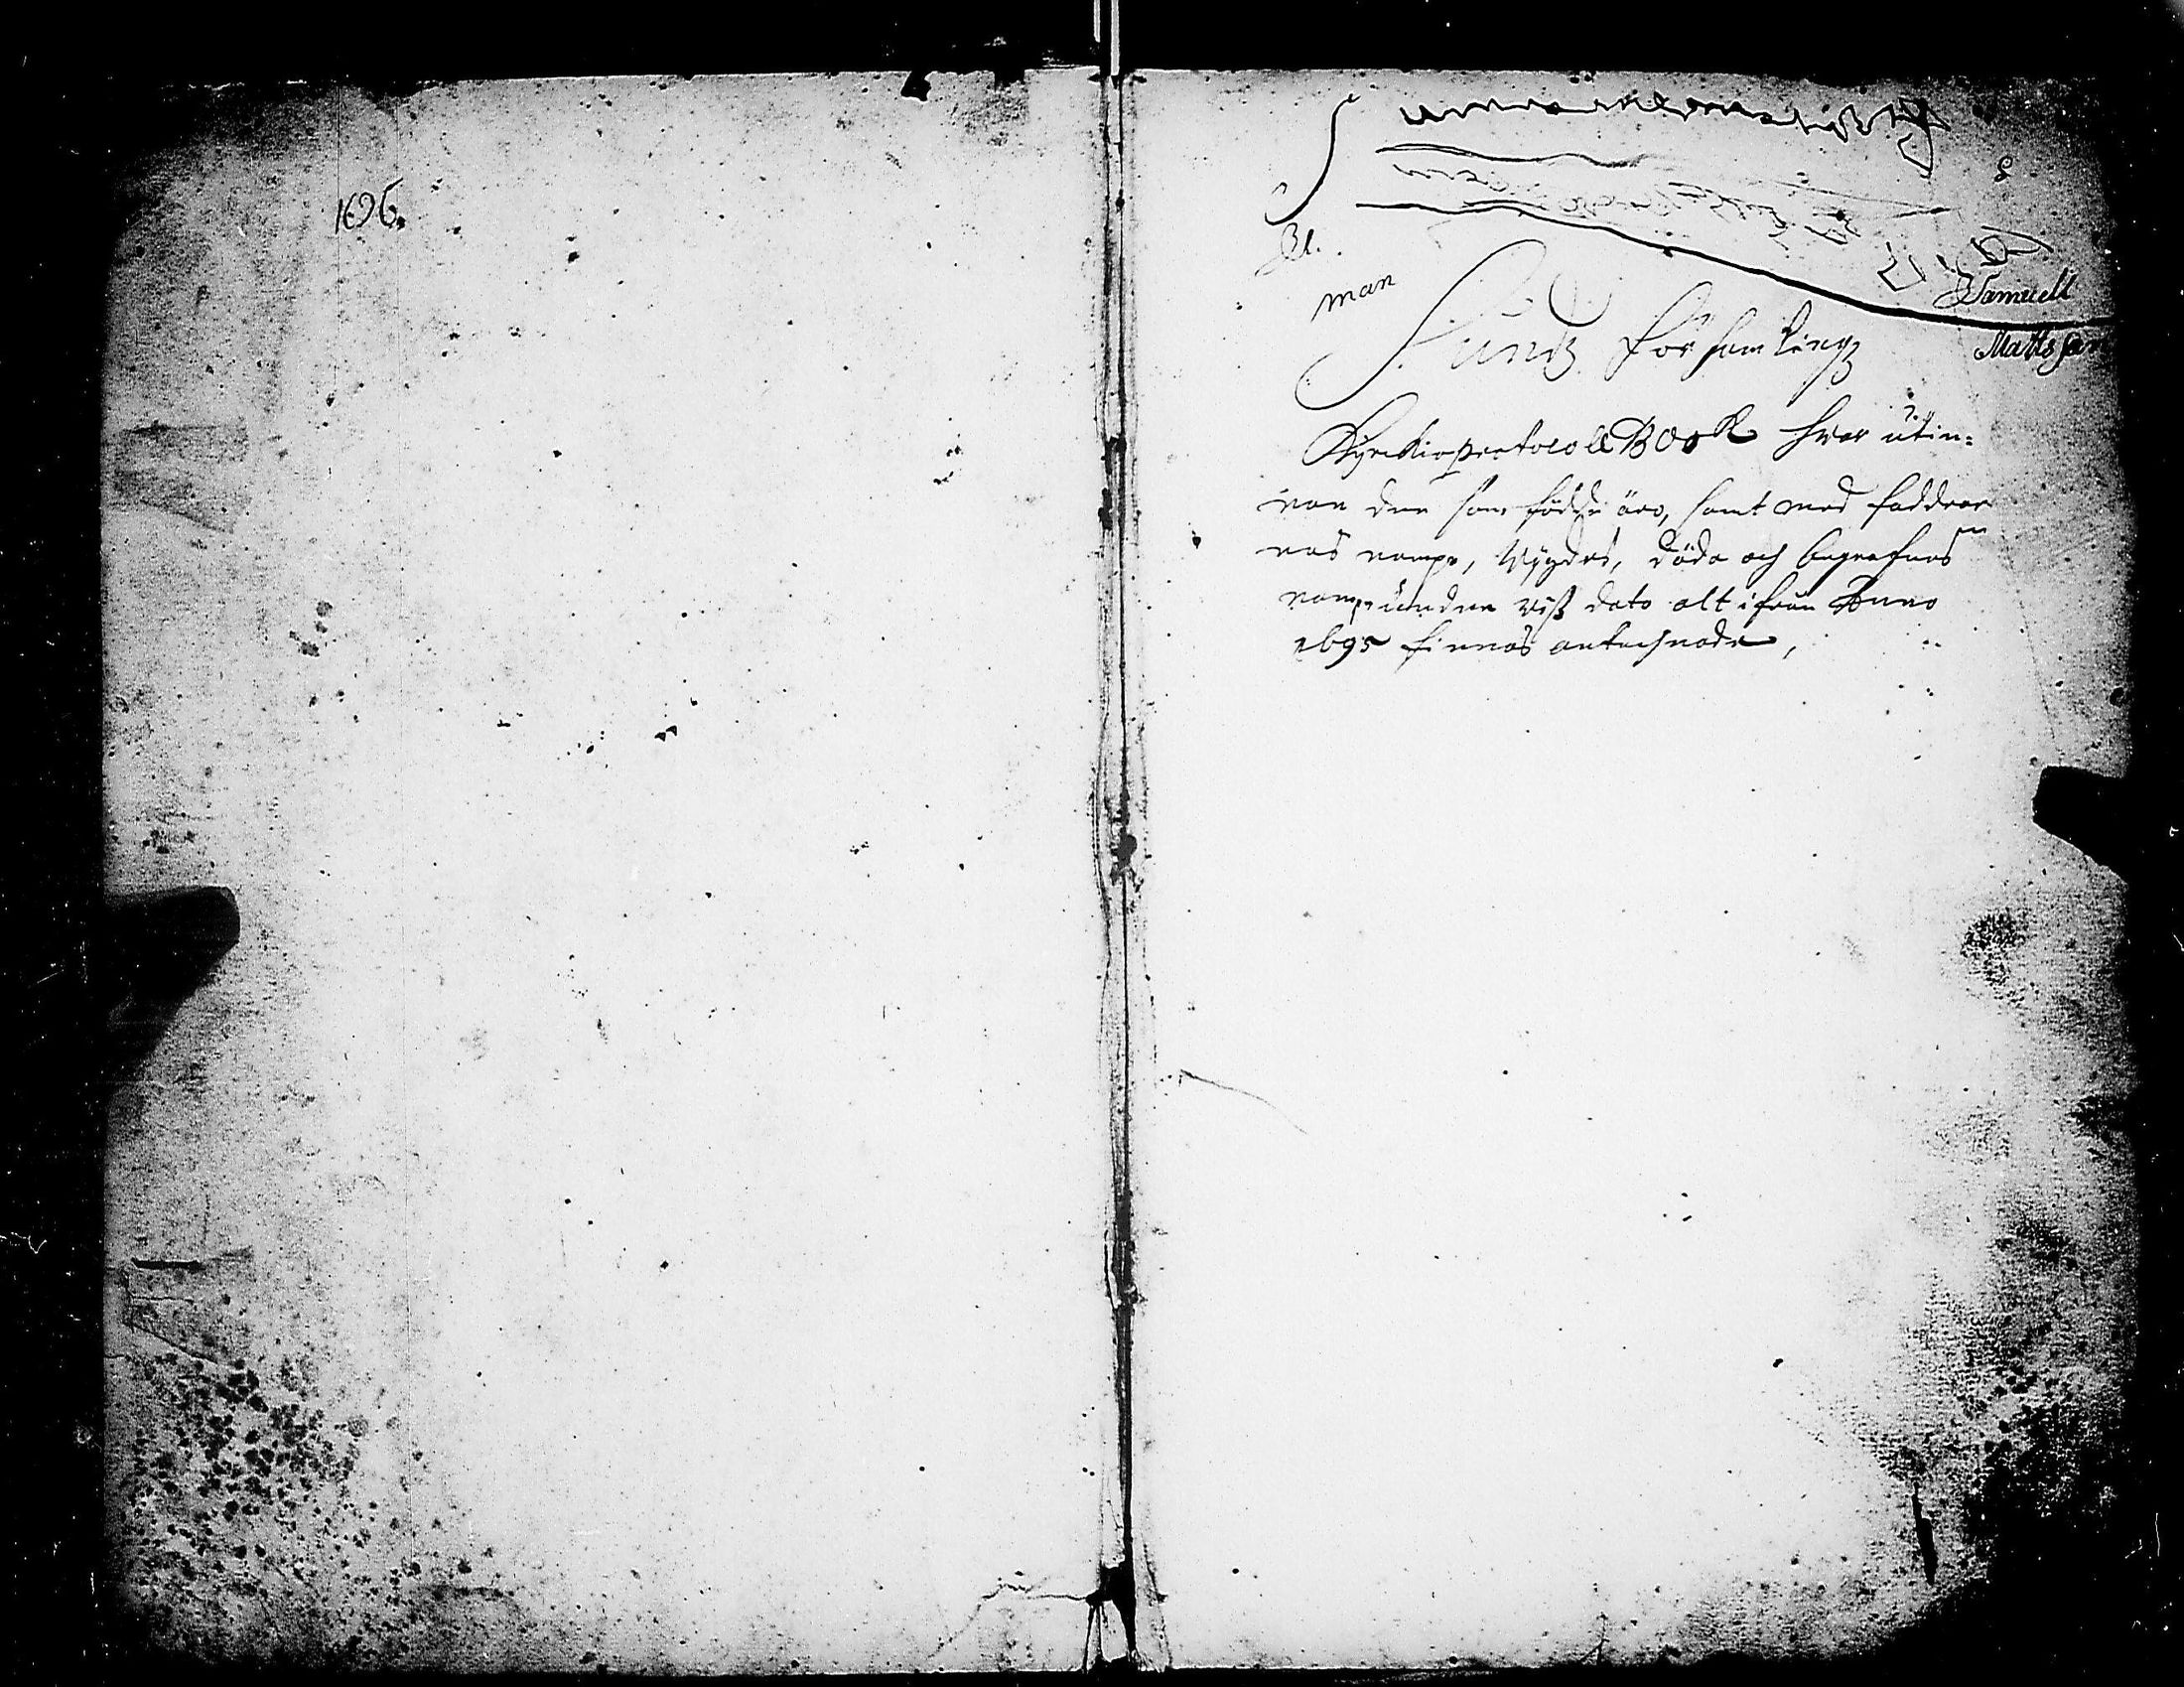 1696.
Bl.
man
Samuell
Mattsson
Sundz Församlings
KyrckioprotocollBOoK hvar utin-
nan dee som födde äro, samt med faddrar
nas nampn, Wygdes, döda och begrafnas
nampn under wiß dato alt ifrån Anno
1695 finnas antechnade,